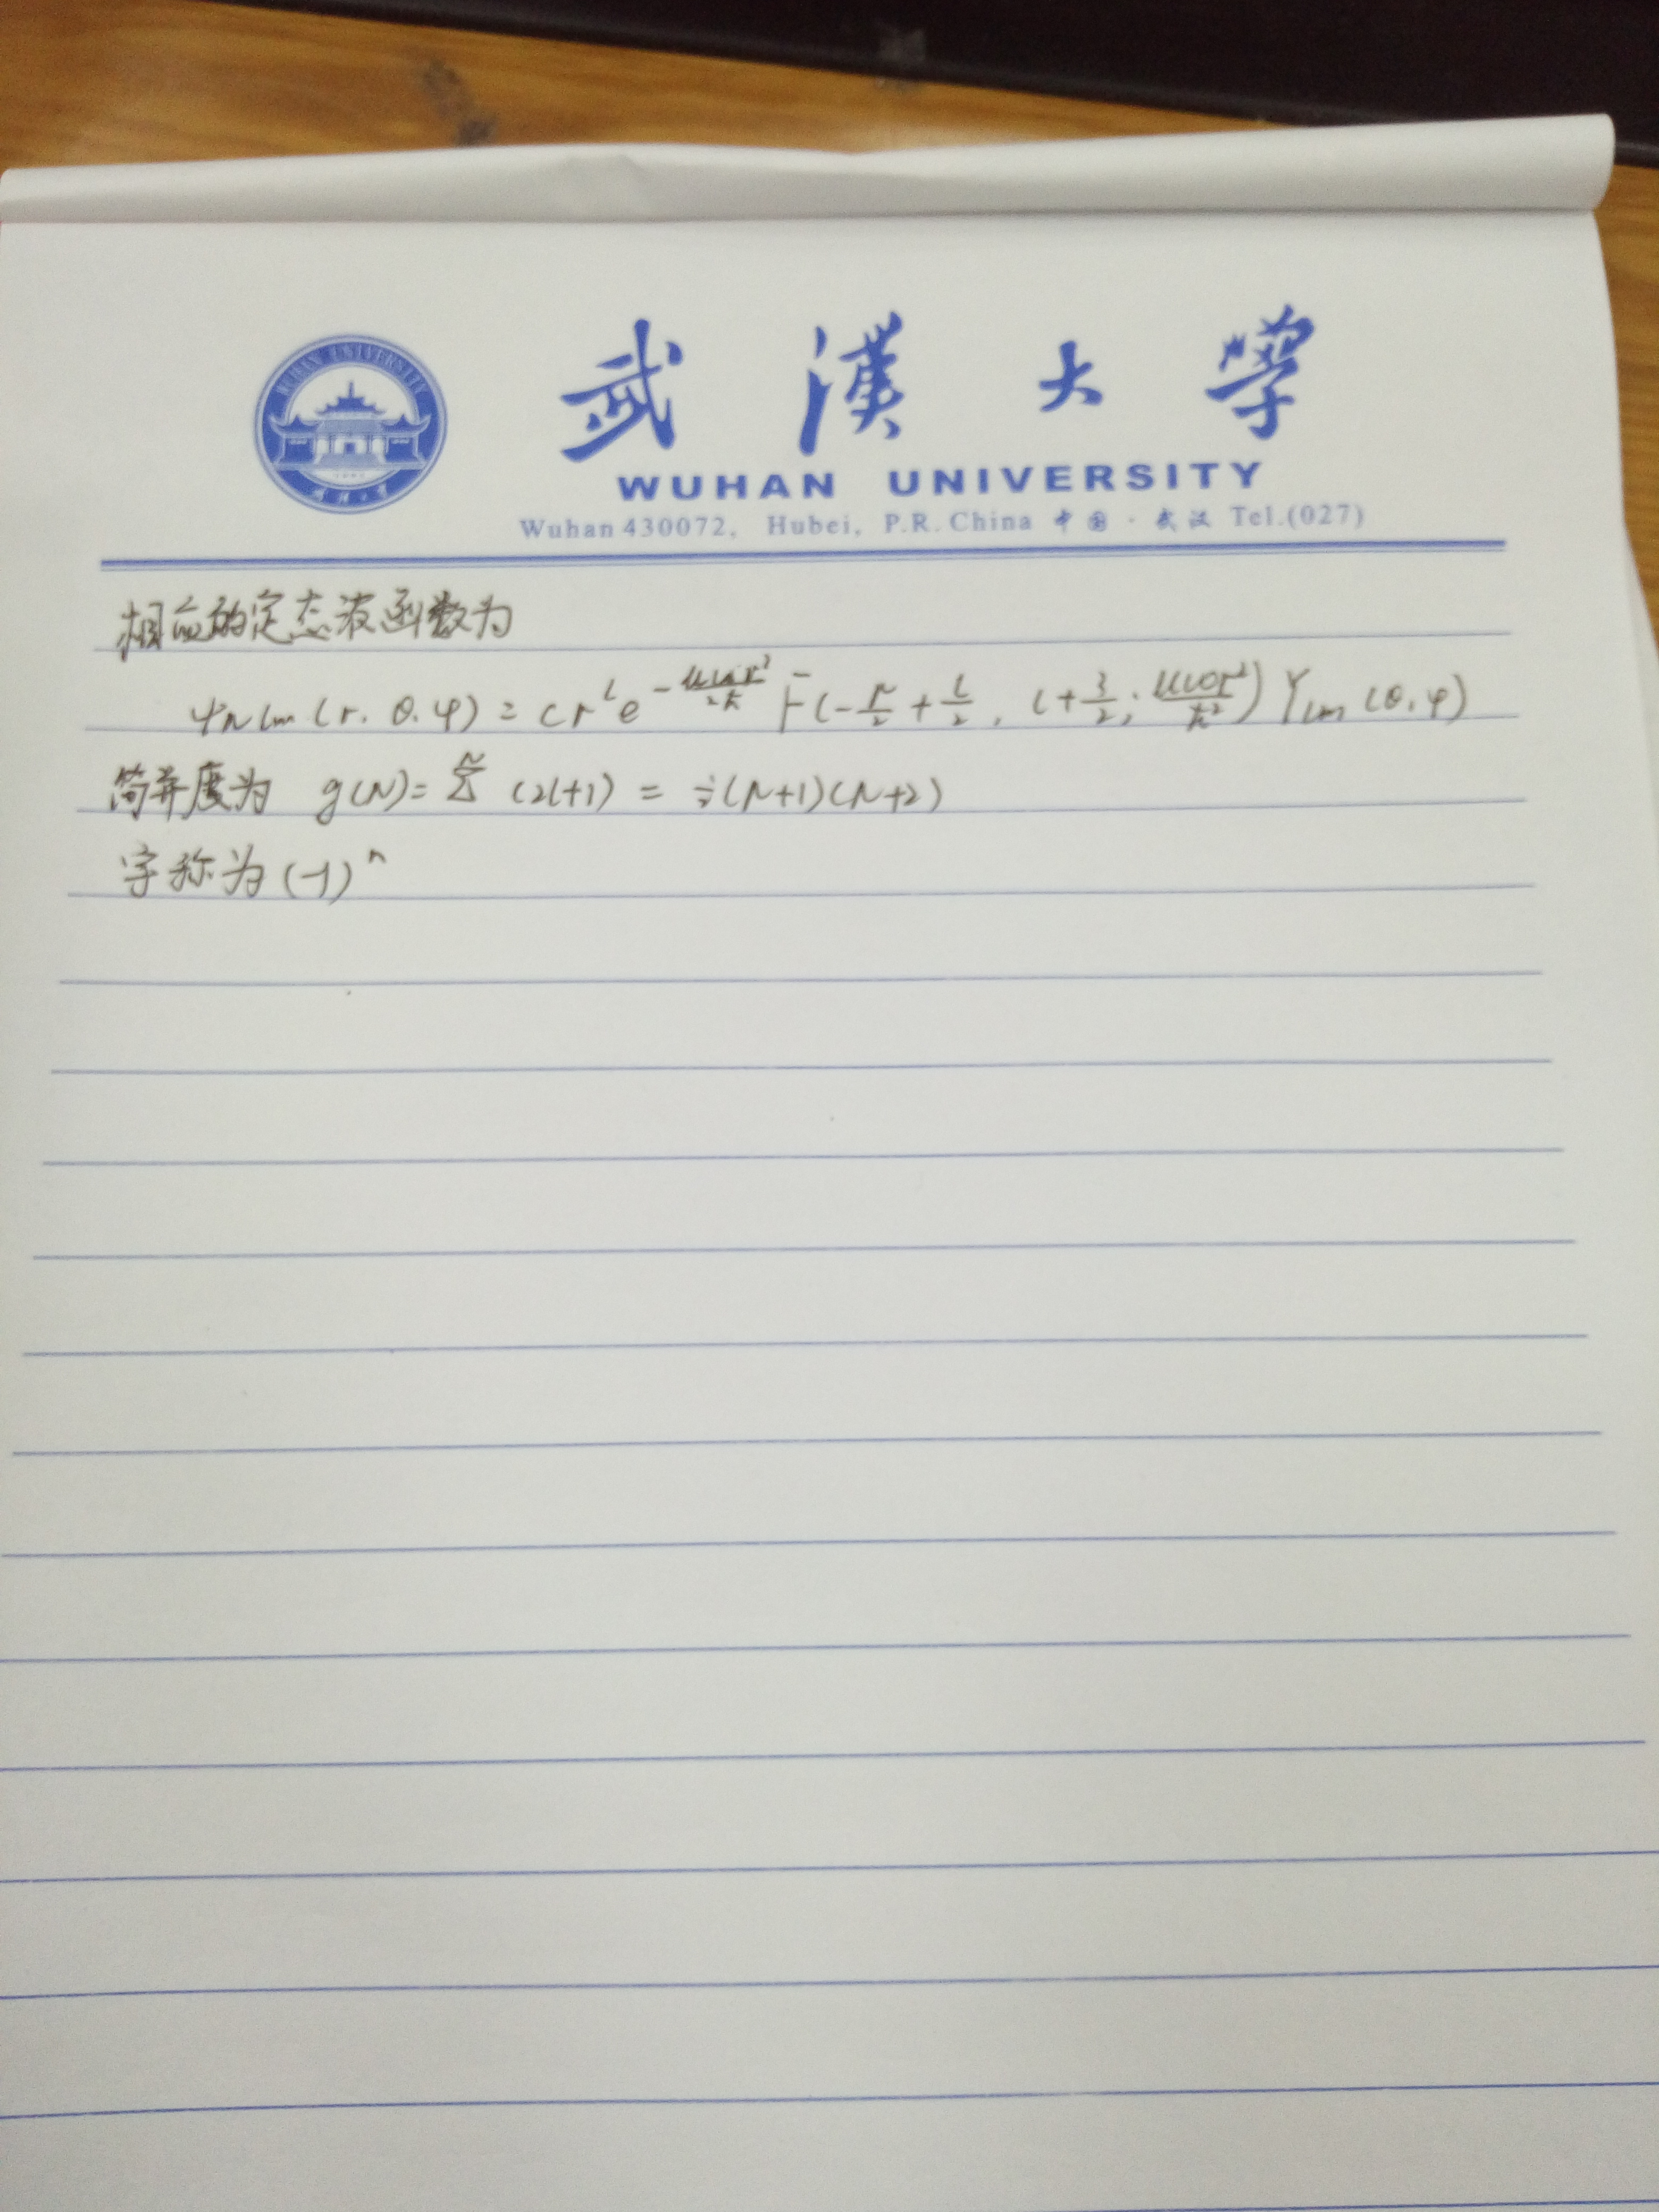 武漢大學
WUHAN UNIVERSITY
Wuhan 430072, Hubei, P.R. China 中国·武汉 Tel.(027)
相应的定态波函数为
ψNlm (r. θ. φ) = c r^l e^{-μωr²/2ħ} F(-N/2 + l/2, l+3/2; μωr²/ħ²) Ylm (θ, φ)
简并度为 g(N)= Σ^N (2l+1) = ½(N+1)(N+2)
宇称为 (-1)^n